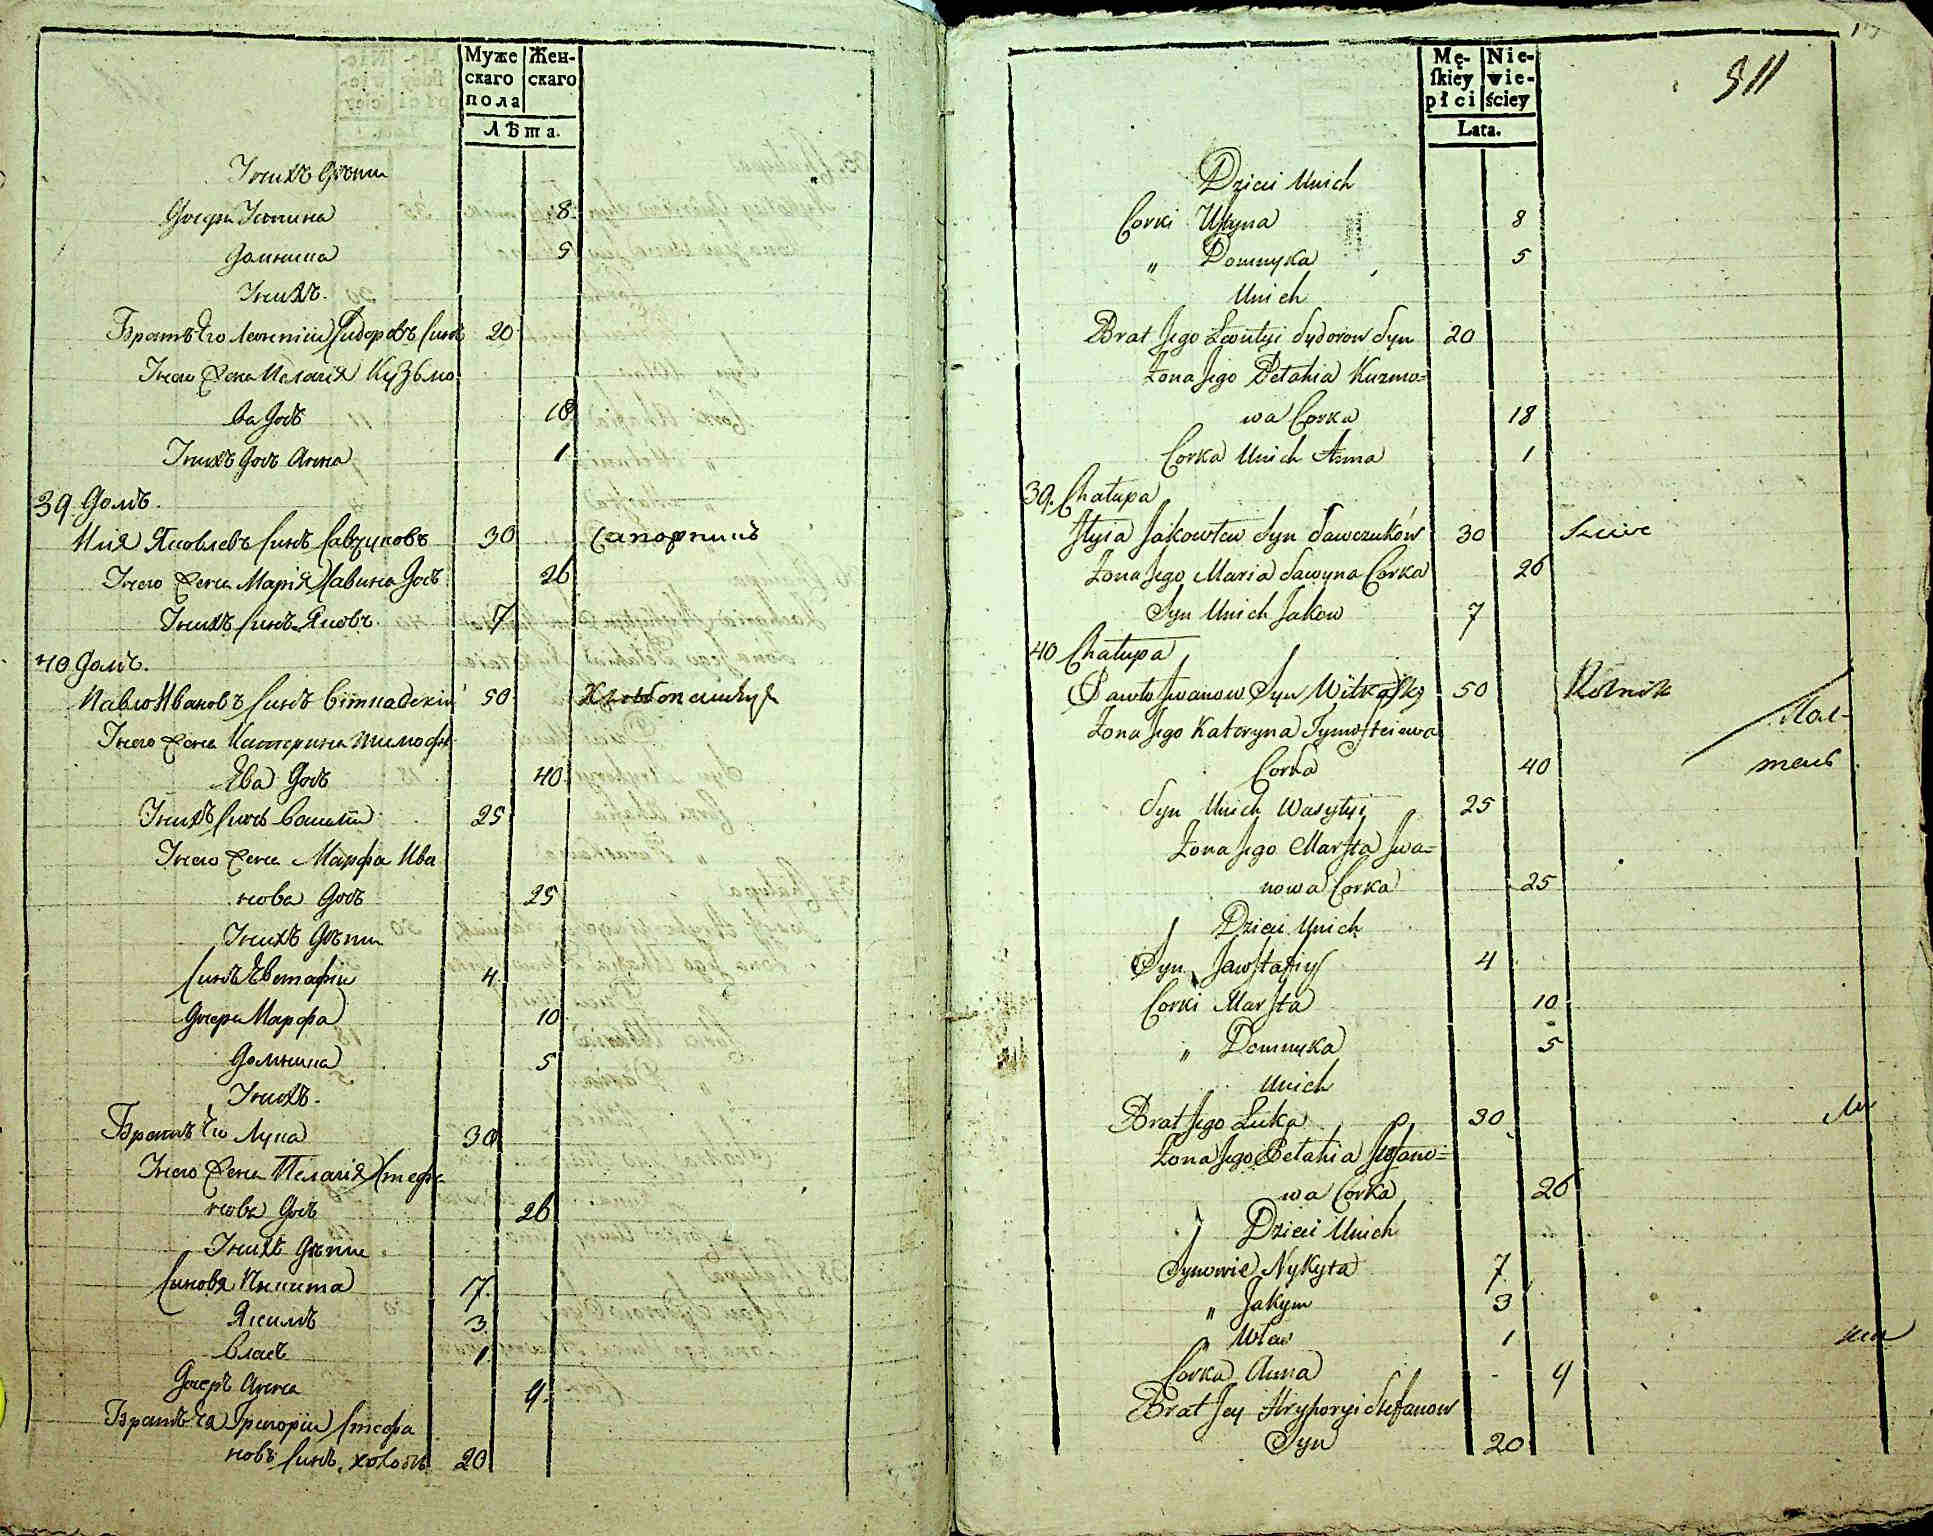 Муже
скаго
пола
Жен-
скаго
Лѣта.
Унихъ Дѣти
Дочери Устина 8
Домника 5
Унихъ.
Братъ Его Леонтіи Сидоровъ Синъ 20
Унего Жена Пелагія Кузьмо
ва Дочь 18
Унихъ Дочь Анна 1
39 Домъ.
Илія Яковлевъ Синъ Савчуковъ 30
Унего Жена Марія Савина Дочь 26
Унихъ Синъ Яковъ 7
40 Домъ.
Павло Ивановъ Синъ Вітковскіи 50 Хлѣбопашецъ
Унего Жена Катерина Тимофѣ
Ева Дочь 40
Унихъ Синъ Василіи 25
Унего Жена Марфа Ива
нова Дочь 25
Унихъ Дѣти
Синъ Евстафіи 4
Дочери Марфа 10
Домника 5
Унихъ.
Братъ Его Лука 30
Унего Жена Пелагія Стефа
нова Дочь 26
Унихъ Дѣти
Синовя Никита 7
Якимъ 3
Власъ 1
Дочеръ Анна 4
Братъ Ея Григоріи Стефа
новъ Синъ, холостъ 20
Mę-
skiey
płci
Nie-
wie-
ściey
Lata.
311
Dzieci Unich
Corki Ustyna 8
" Domnyka 5
Unich
Brat Jego Lewntyi Sydorow Syn 20
Żona Jego Petahia Kuzmo=
wa Corka 18
Corka Unich Anna 1
39. Chałupa
Jlyia Jakowlew Syn Sawczuków 30
Żona Jego Maria Sawyna Corka 26
Syn Unich Jakow 7
40 Chałupa
Pawło Jwanow Syn Witkowsky 50 Rolnik
Żona Jego Kateryna Tymofteiewa
Corka 40
Syn Unich Wasylyi 25
Żona Jego Marfta Jwa=
nowa Corka 25
Dzieci Unich
Syn Jawstafiy 4
Corki Marfta 10
" Domnyka 5
Unich
Brat Jego Łuka 30
Żona Jego Petahia Stefano=
wa Corka 26
Dzieci Unich
Synowie Nykyta 7
" Jakym 3
" Wlas 1
Corka Anna 4
Brat Jey Hryhoryi Stefanow
Syn 20